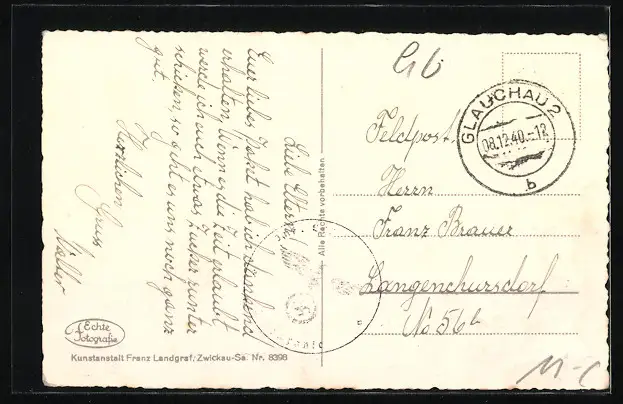 Liebe Eltern!
Euer liebes Paket hab ich dankend
erhalten. Wenn es die Zeit erlaubt
werde ich euch etwas Zucker runter
schicken, so geht es uns noch ganz
gut.
Herzlichen Gruss
Walter
Echte
Fotografie
Kunstanstalt Franz Landgraf, Zwickau-Sa. Nr. 8398
Alle Rechte vorbehalten
Feldpost
GLAUCHAU 2
08.12.40.-12
b
Herrn
Franz Brauer
Langenchursdorf
No 56b